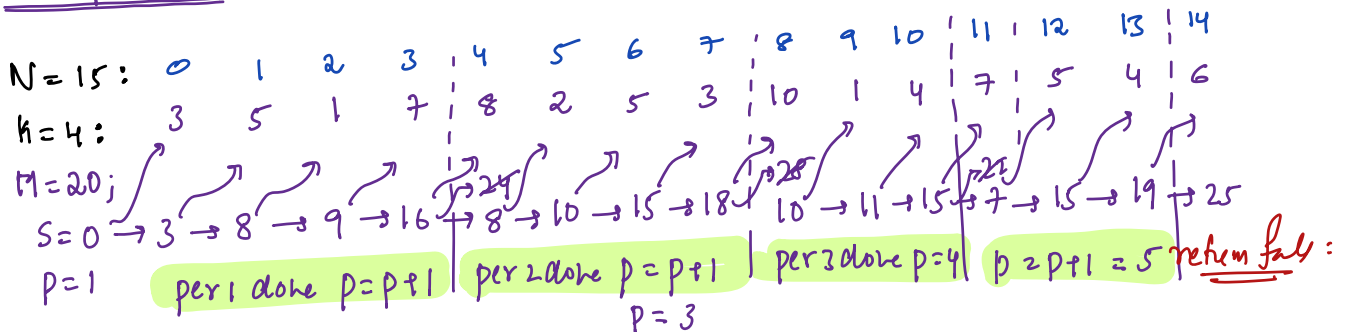 0 1 2 3 4 5 6 7 8 9 10 11 12 13 14
N = 15 :
3 5 1 7 8 2 5 3 10 1 4 7 5 4 6
K = 4 :
M = 20 ;
24 28 22
S = 0 → 3 → 8 → 9 → 16 → 8 → 10 → 15 → 18 10 → 11 → 15 → 7 → 15 → 19 → 25
P = 1 per 1 done p = p+1 per 2 done p = p+1 per 3 done p = 4 p = p+1 = 5 return false :
P = 3